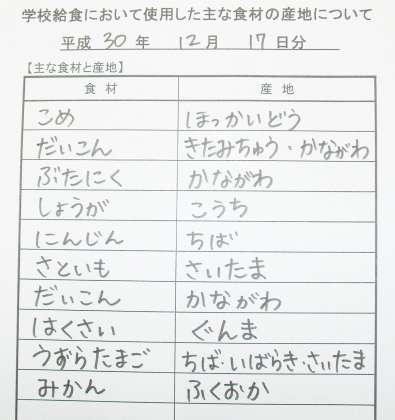 学校給食において使用した主な食材の産地について
平成 30 年 12 月 17 日分
【主な食材と産地】
食 材 産 地
こめ ほっかいどう
だいこん きたみちゅう・かながわ
ぶたにく かながわ
しょうが こうち
にんじん ちば
さといも さいたま
だいこん かながわ
はくさい ぐんま
うずらたまご ちば・いばらき・さいたま
みかん ふくおか